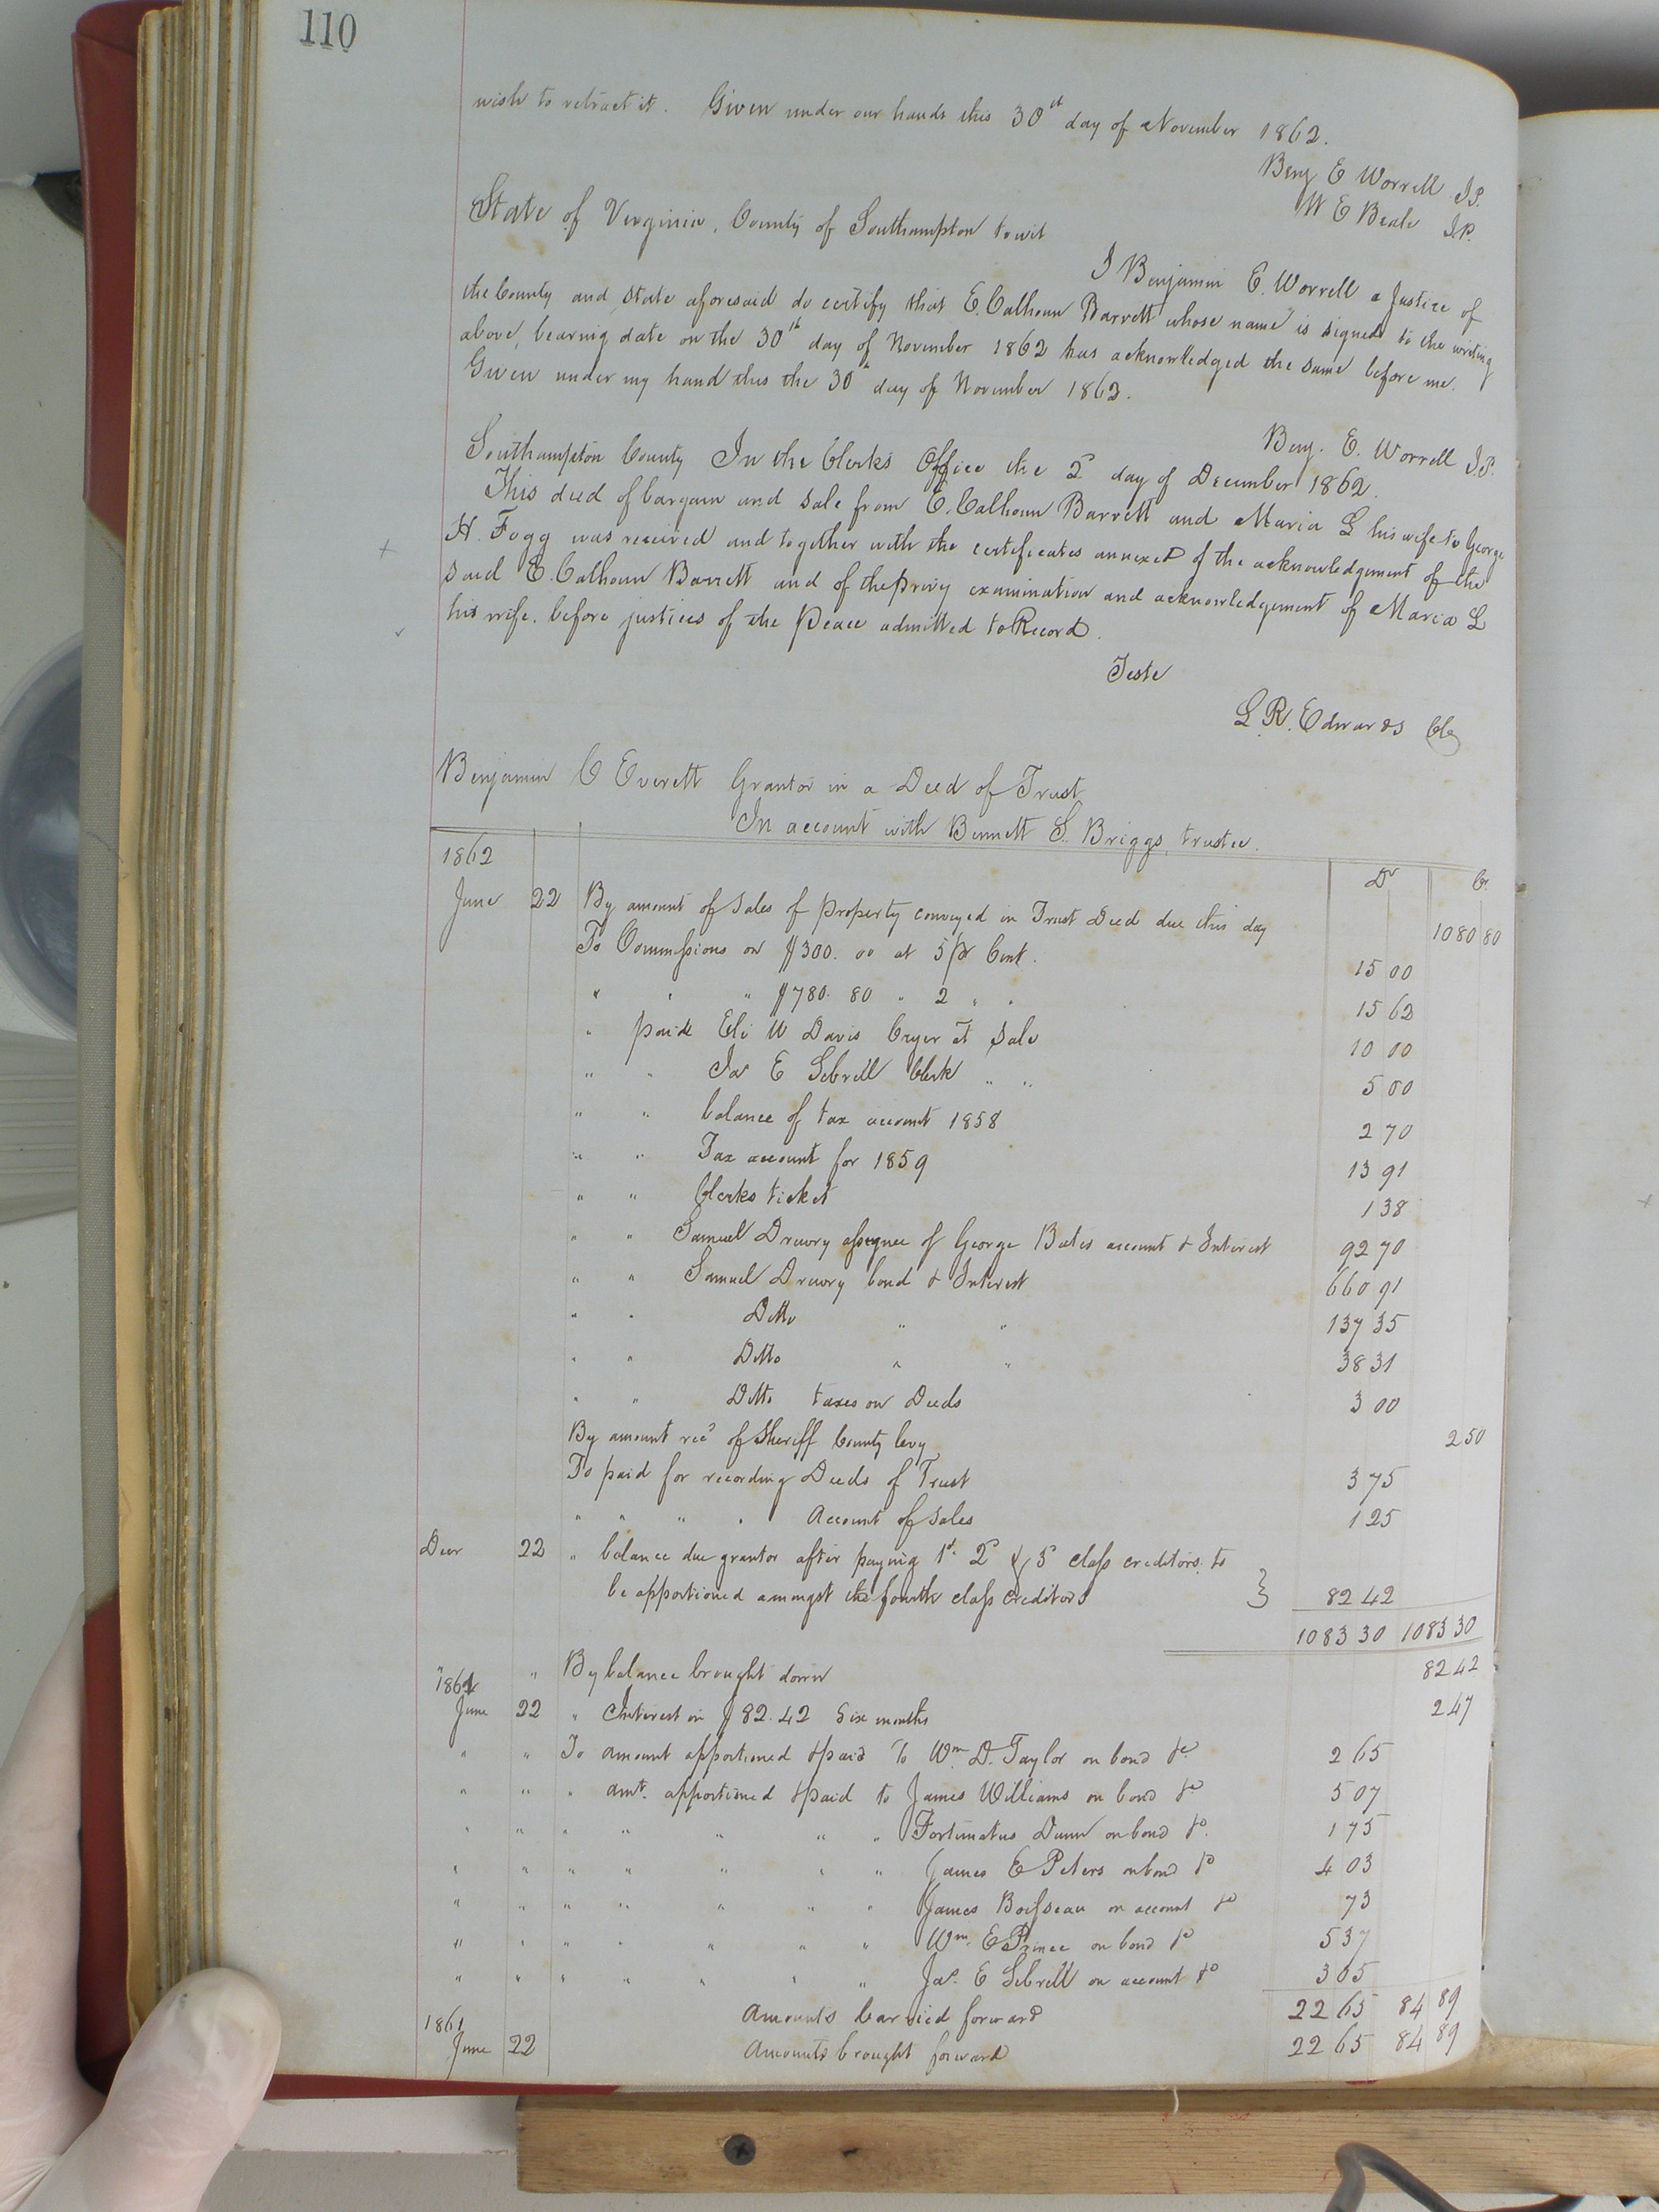 110
wish to retract it. Given under our hands this 30th day of November 1862.
Benj E Worrell J.P.
W E Beale J.P.
State of Virginia, County of Southampton to wit
I Benjamin E. Worrell a Justice of
the County and State aforesaid do certify that E. Calhoun Barrett whose name is signed to the writing
above, bearing date on the 30th day of November 1862 has acknowledged the same before me.
Given under my hand this the 30th day of November 1862.
Benj. E. Worrell J.P.
Southampton County In the Clerks Office the 2d day of December 1862.
This deed of bargain and sale from E. Calhoun Barrett and Maria L his wife to George
H. Fogg was received and together with the certificates annexed of the acknowledgement of the
said E. Calhoun Barrett and of the privy examination and acknowledgement of Maria L
his wife. before justices of the Peace admitted to Record.
Teste
L. R. Edwards Clk
Benjamin C Everett Grantor in a Deed of Trust
In account with Bennett S. Briggs, trustee.
1862 Dr Cr
June 22 By amount of Sales of property conveyed in Trust Deed due this day 1080 80
To Commissions on $300. 00 at 5 pr Cent. 15 00
" " " $780. 80 " 2 " " 15 62
" paid Eli W Davis Cryer at Sale 10 00
" " Jas E Sebrell Clerk " " 5 00
" " balance of tax account 1858 2 70
" " Tax account for 1859 13 91
" " Clerks ticket 1 38
" " Samuel Drewry assignee of George Bates account & Interest 92 70
" " Samuel Drewry bond & Interest 660 91
" " Ditto " " 137 35
" " Ditto " " 38 31
" " Ditto taxes on Deeds 3 00
By amount recd of Sheriff County levy 2 50
To paid for recording Deeds of Trust 3 75
" " " " Account of Sales 1 25
Decr 22 " balance due grantor after paying 1st 2d & 3d class creditors. to
be apportioned amongst the fourth class Creditors } 82 42
1083 30 1083 30
" " By balance brought down 82 42
1861
June 22 " Interest on $82.42 Six months 2 47
" " To amount apportioned & paid to Wm D. Taylor on bond &c 2 65
" " " amt. apportioned & paid to James Williams on bond &c 5 07
" " " " " " " Fortunatus Dunn on bond &c. 1 75
" " " " " " " James E Peters on bond &c 4 03
" " " " " " " James Boisseau on account &c 73
" " " " " " " Wm. E Prince on bond &c 5 37
" " " " " " " Jas. E Sebrell on account &c 3 05
Amounts Carried forward 22 65 84 89
1861
June 22 Amounts brought forward 22 65 84 89